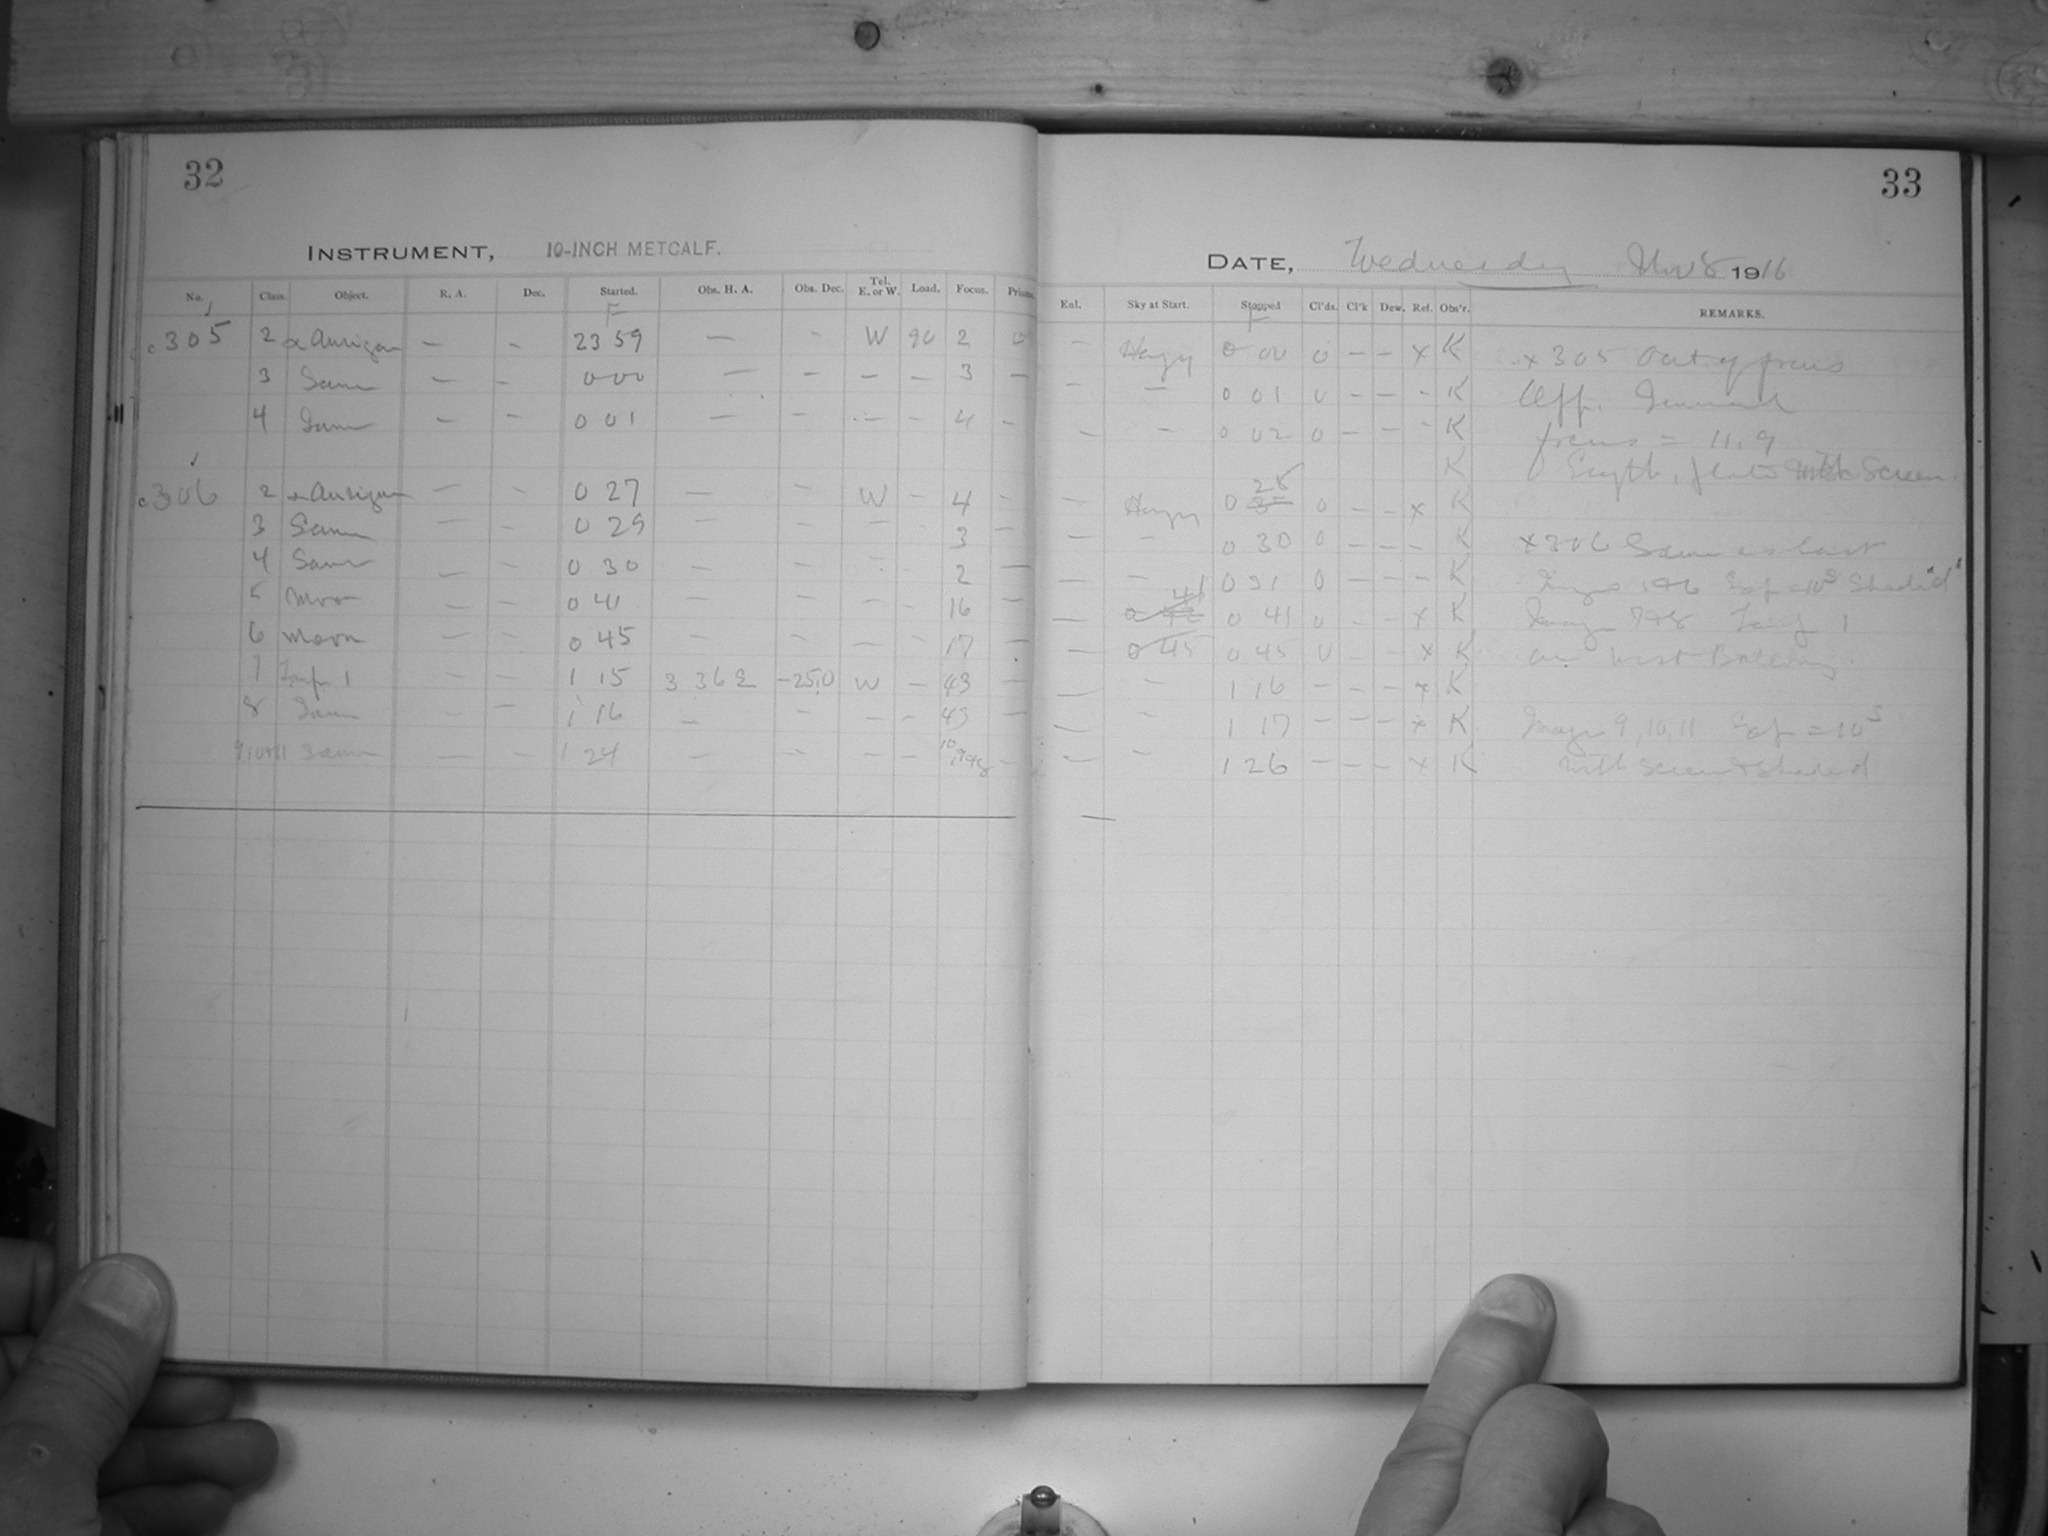 32
INSTRUMENT, 10-INCH METCALF.
No. Class. Object. R. A. Dec. Started. Obs. H. A. Obs. Dec. Tel. E. or W. Load. Focus.
F
c305 2 α Aurigae — - 23 59 — - W 90 2
3 Same — - 0 00 — - — — 3 —
4 Same — - 0 01 — - — — 4 -
c306 2 α Aurigae — - 0 27 — - W - 4 -
3 Same — - 0 29 — - — 3 —
4 Same — - 0 30 — - - - 2 —
5 Moon — - 0 41 — - — - 16 —
6 Moon — - 0 45 - - — - 17 —
7 1 - - 1 15 3 36 E -25.0 W - 43
8 Same - — 1 16 - - — - 43 —
9 10+11 Same — - 1 24 - - — - 10, 9+8 -
33
DATE, Wednesday Nov 8 1916
Enl. Sky at Start. Stopped Cl'ds. Cl'k Dew. Ref. Obs'r. REMARKS.
F
- Hazy 0 00 0 - - x K x 305 Out of focus
- — 0 01 0 - - - K
- - 0 02 0 - - - K focus = 11.9
K Screen
- Hazy 0 28 0 - - x K
- - 0 30 0 - - - K x 306 Same as last
— - 0 31 0 - - - K = 10s Shaded
— 0 41 0 - - x K 7+8 1
- 0 45 0 45 0 - - x K West
— - 1 16 - - - x K
— - 1 17 - - - x K Image 9, 10, 11 = 10s
— - 1 26 - - - x K with screen & shaded